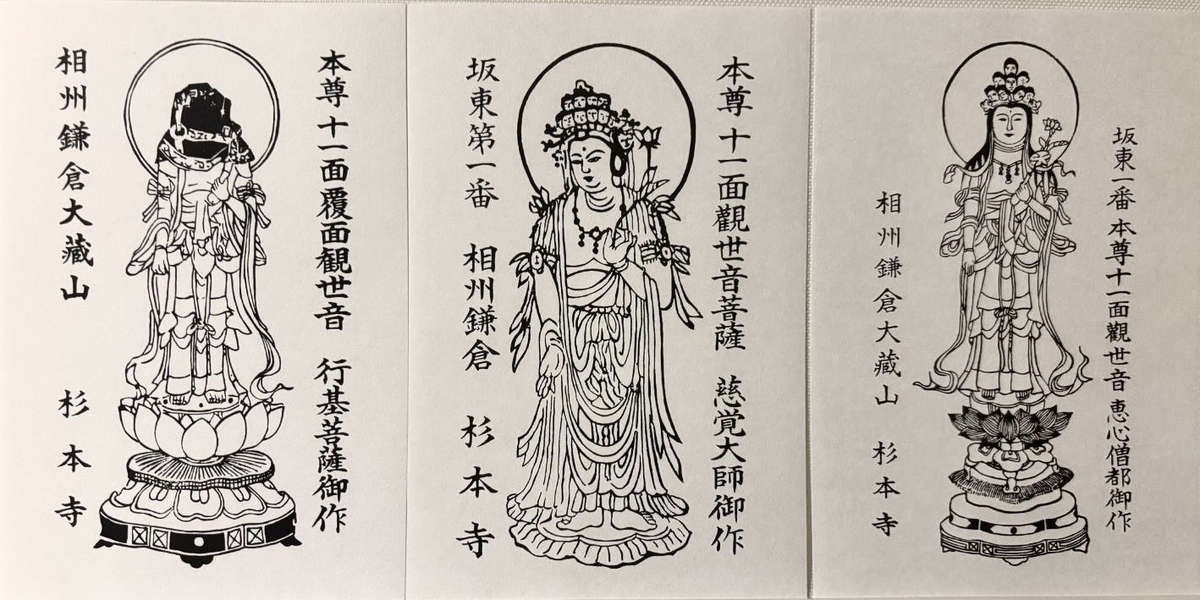 本尊十一面覆面観世音 行基菩薩御作
相州鎌倉大藏山 杉本寺
本尊十一面觀世音菩薩 慈覚大師御作
坂東第一番 相州鎌倉 杉本寺
坂東一番 本尊十一面觀世音 恵心僧都御作
相州鎌倉大藏山 杉本寺